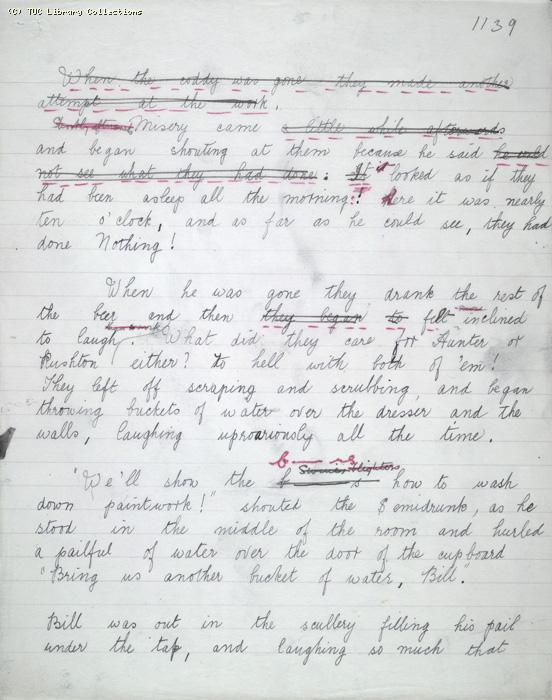 (C) TUC Library Collections
1139
When the coddy was gone they made another
attempt at the work.
Misery came a little while afterwards
and began shouting at them because he said he could
not see what they had done. It it looked as if they
had been asleep all the morning! Here it was nearly
ten o'clock, and as far as he could see, they had
done Nothing!
When he was gone they drank the rest of
the beer and then they began to felt inclined
to laugh. What did they care for Hunter or
Rushton either? To hell with both of 'em!
They left off scraping and scrubbing, and began
throwing buckets of water over the dresser and the
walls, laughing uproariously all the time.
b——rs
"We'll show the b——s how to wash
down paintwork!" shouted the Semidrunk, as he
stood in the middle of the room and hurled
a pailful of water over the door of the cupboard
"Bring us another bucket of water, Bill".
Bill was out in the scullery filling his pail
under the tap, and laughing so much that